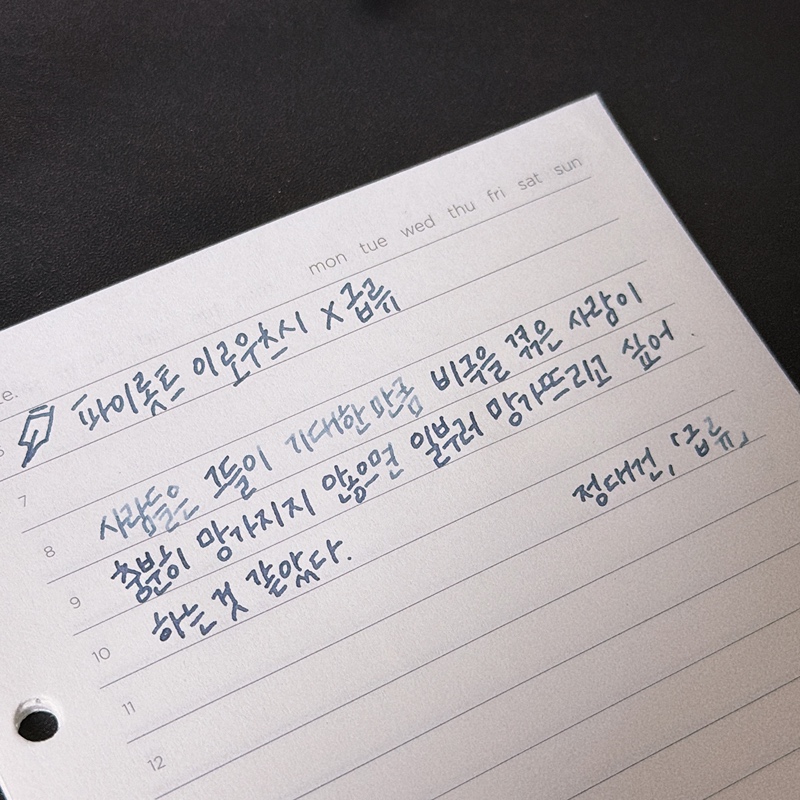 mon tue wed thu fri sat sun
te.
파이롯트 이로우츠시 × 급류
6
7
사람들은 그들이 기대한만큼 비극을 겪은 사람이
8
충분히 망가지지 않으면 일부러 망가뜨리고 싶어
9
하는 것 같았다.
정대건, 「급류」
10
11
12